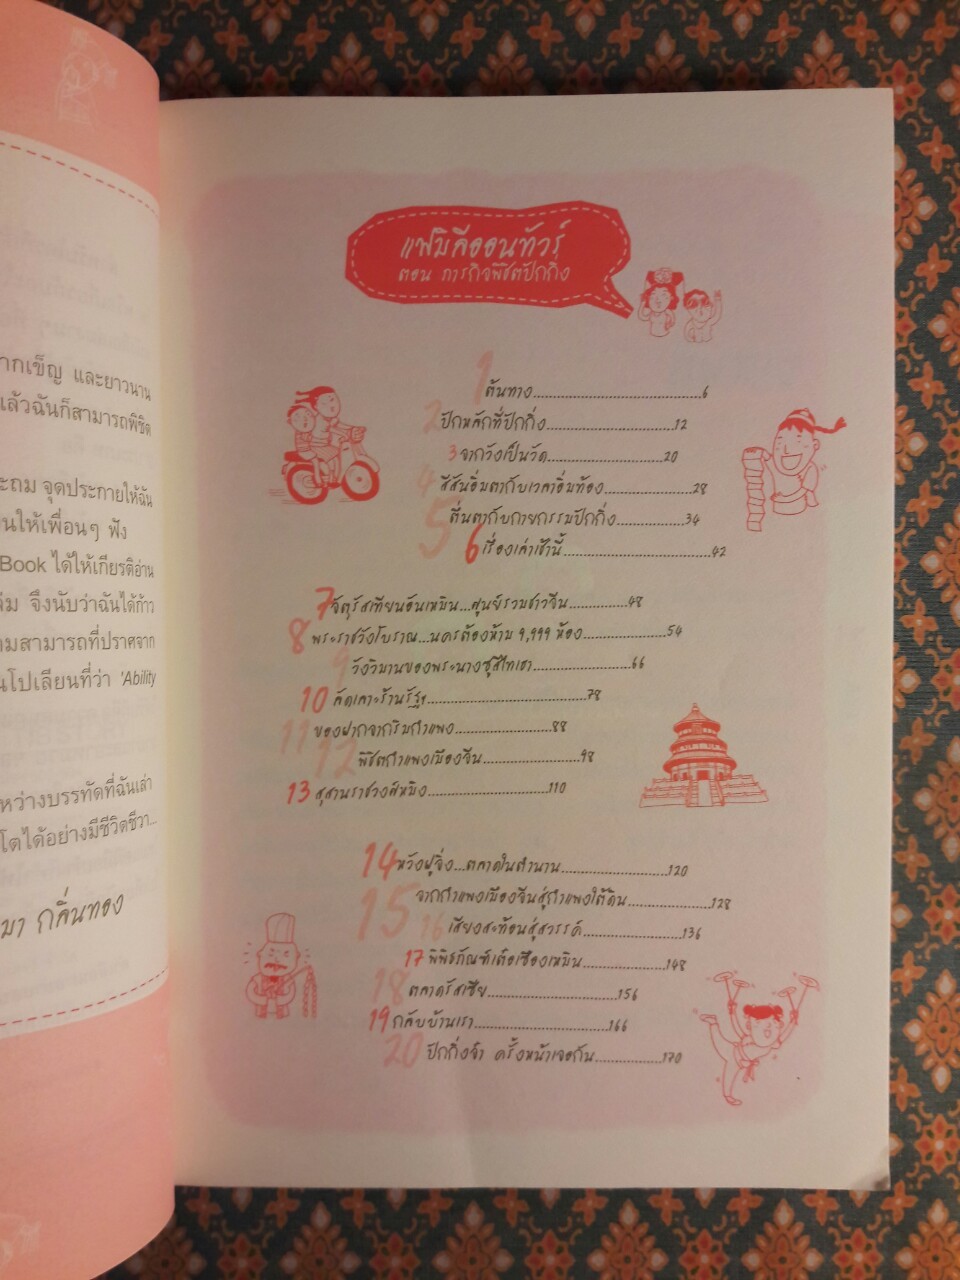 ากเข็ญ และยาวนาน
แล้วฉันก็สามารถพิชิต
ะถม จุดประกายให้ฉัน
นให้เพื่อนๆ ฟัง
Book ได้ให้เกียรติอ่าน
จึงนับว่าฉันได้ก้าว
ามสามารถที่ปราศจาก
นโปเลียนที่ว่า 'Ability
หว่างบรรทัดที่ฉันเล่า
โตได้อย่างมีชีวิตชีวา...
มา กลิ่นทอง
แฟมิลีออนทัวร์
ตอน ภารกิจพิชิตปักกิ่ง
1 ต้นทาง........................................6
2 ปักหลักที่ปักกิ่ง..............................12
3 จากวังเป็นวัด...........................20
4 สีสันอิ่มตากับเวลาอิ่มท้อง....................28
5 ตื่นตากับกายกรรมปักกิ่ง................34
6 เรื่องเล่าเช้านี้..................................42
7 จัตุรัสเทียนอันเหมิน...ศูนย์รวมชาวจีน..............48
8 พระราชวังโบราณ...นครต้องห้าม 9,999 ห้อง....................54
9 วังวิมานของพระนางซูสีไทเฮา........................66
10 ลัดเลาะร้านรัฐฯ......................................78
11 ของฝากจากริมกำแพง.......................88
12 พิชิตกำแพงเมืองจีน.......................98
13 สุสานราชวงศ์หมิง.............................110
14 หวังฝูจิ่ง...ตลาดในตำนาน.........................120
15 จากกำแพงเมืองจีนสู่กำแพงใต้ดิน....................128
16 เสียงสะท้อนสู่สวรรค์.......................136
17 พิพิธภัณฑ์เต๋อเซิ่งเหมิน...................148
18 ตลาดรัสเซีย..............................156
19 กลับบ้านเรา...............................166
20 ปักกิ่งจ๋า ครั้งหน้าเจอกัน................170